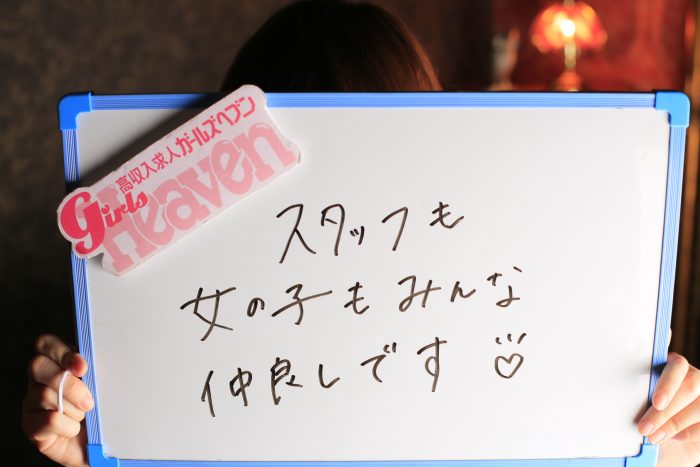 高収入求人ガールズヘブン
Girls Heaven
スタッフも
女の子もみんな
仲良しです♡